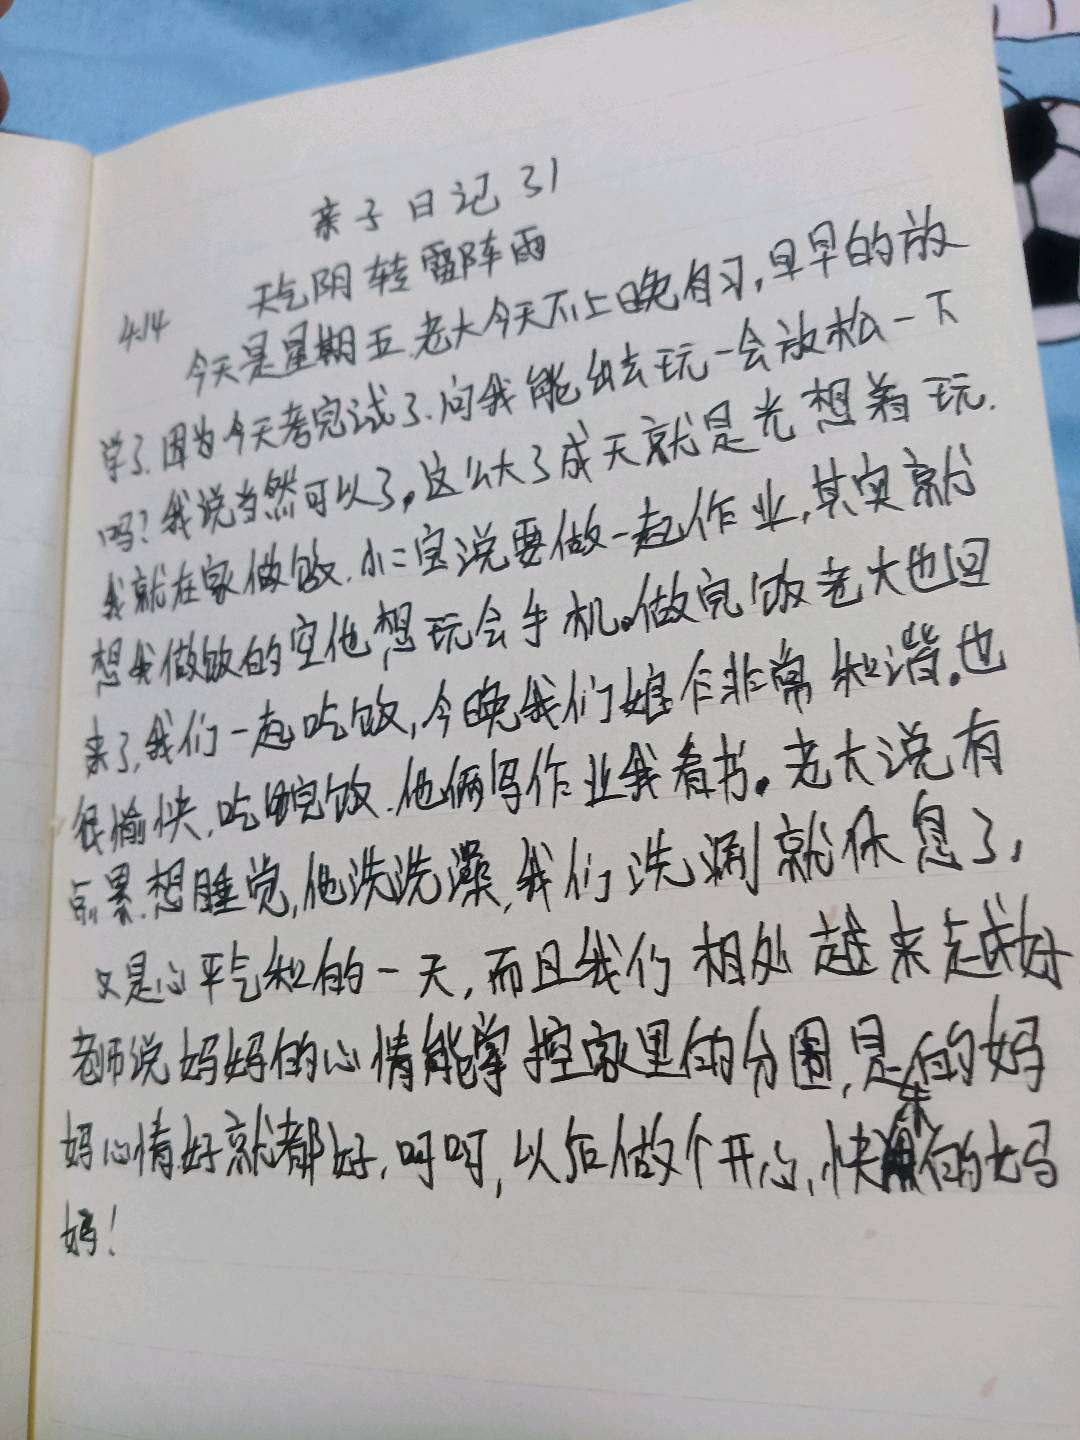 亲子日记31
4.14 天气阴转雷阵雨
今天是星期五.老大今天不上晚自习,早早的放
学了.因为今天考完试了.问我能出去玩一会放松一下
吗?我说当然可以了。这么大了成天就是光想着玩.
我就在家做饭.小二宝说要做一起作业,其实就
想我做饭的空他想玩会手机。做完饭老大也回
来了,我们一起吃饭,今晚我们娘仨非常和谐.也
很愉快.吃完饭.他俩写作业我看书。老大说有
点累.想睡觉,他洗洗澡,我们洗涮就休息了,
又是心平气和的一天,而且我们相处越来越好
老师说妈妈的心情能掌控家里的分围,是的妈
妈心情好就都好.呵呵,以后做个开心,快乐的妈
妈!